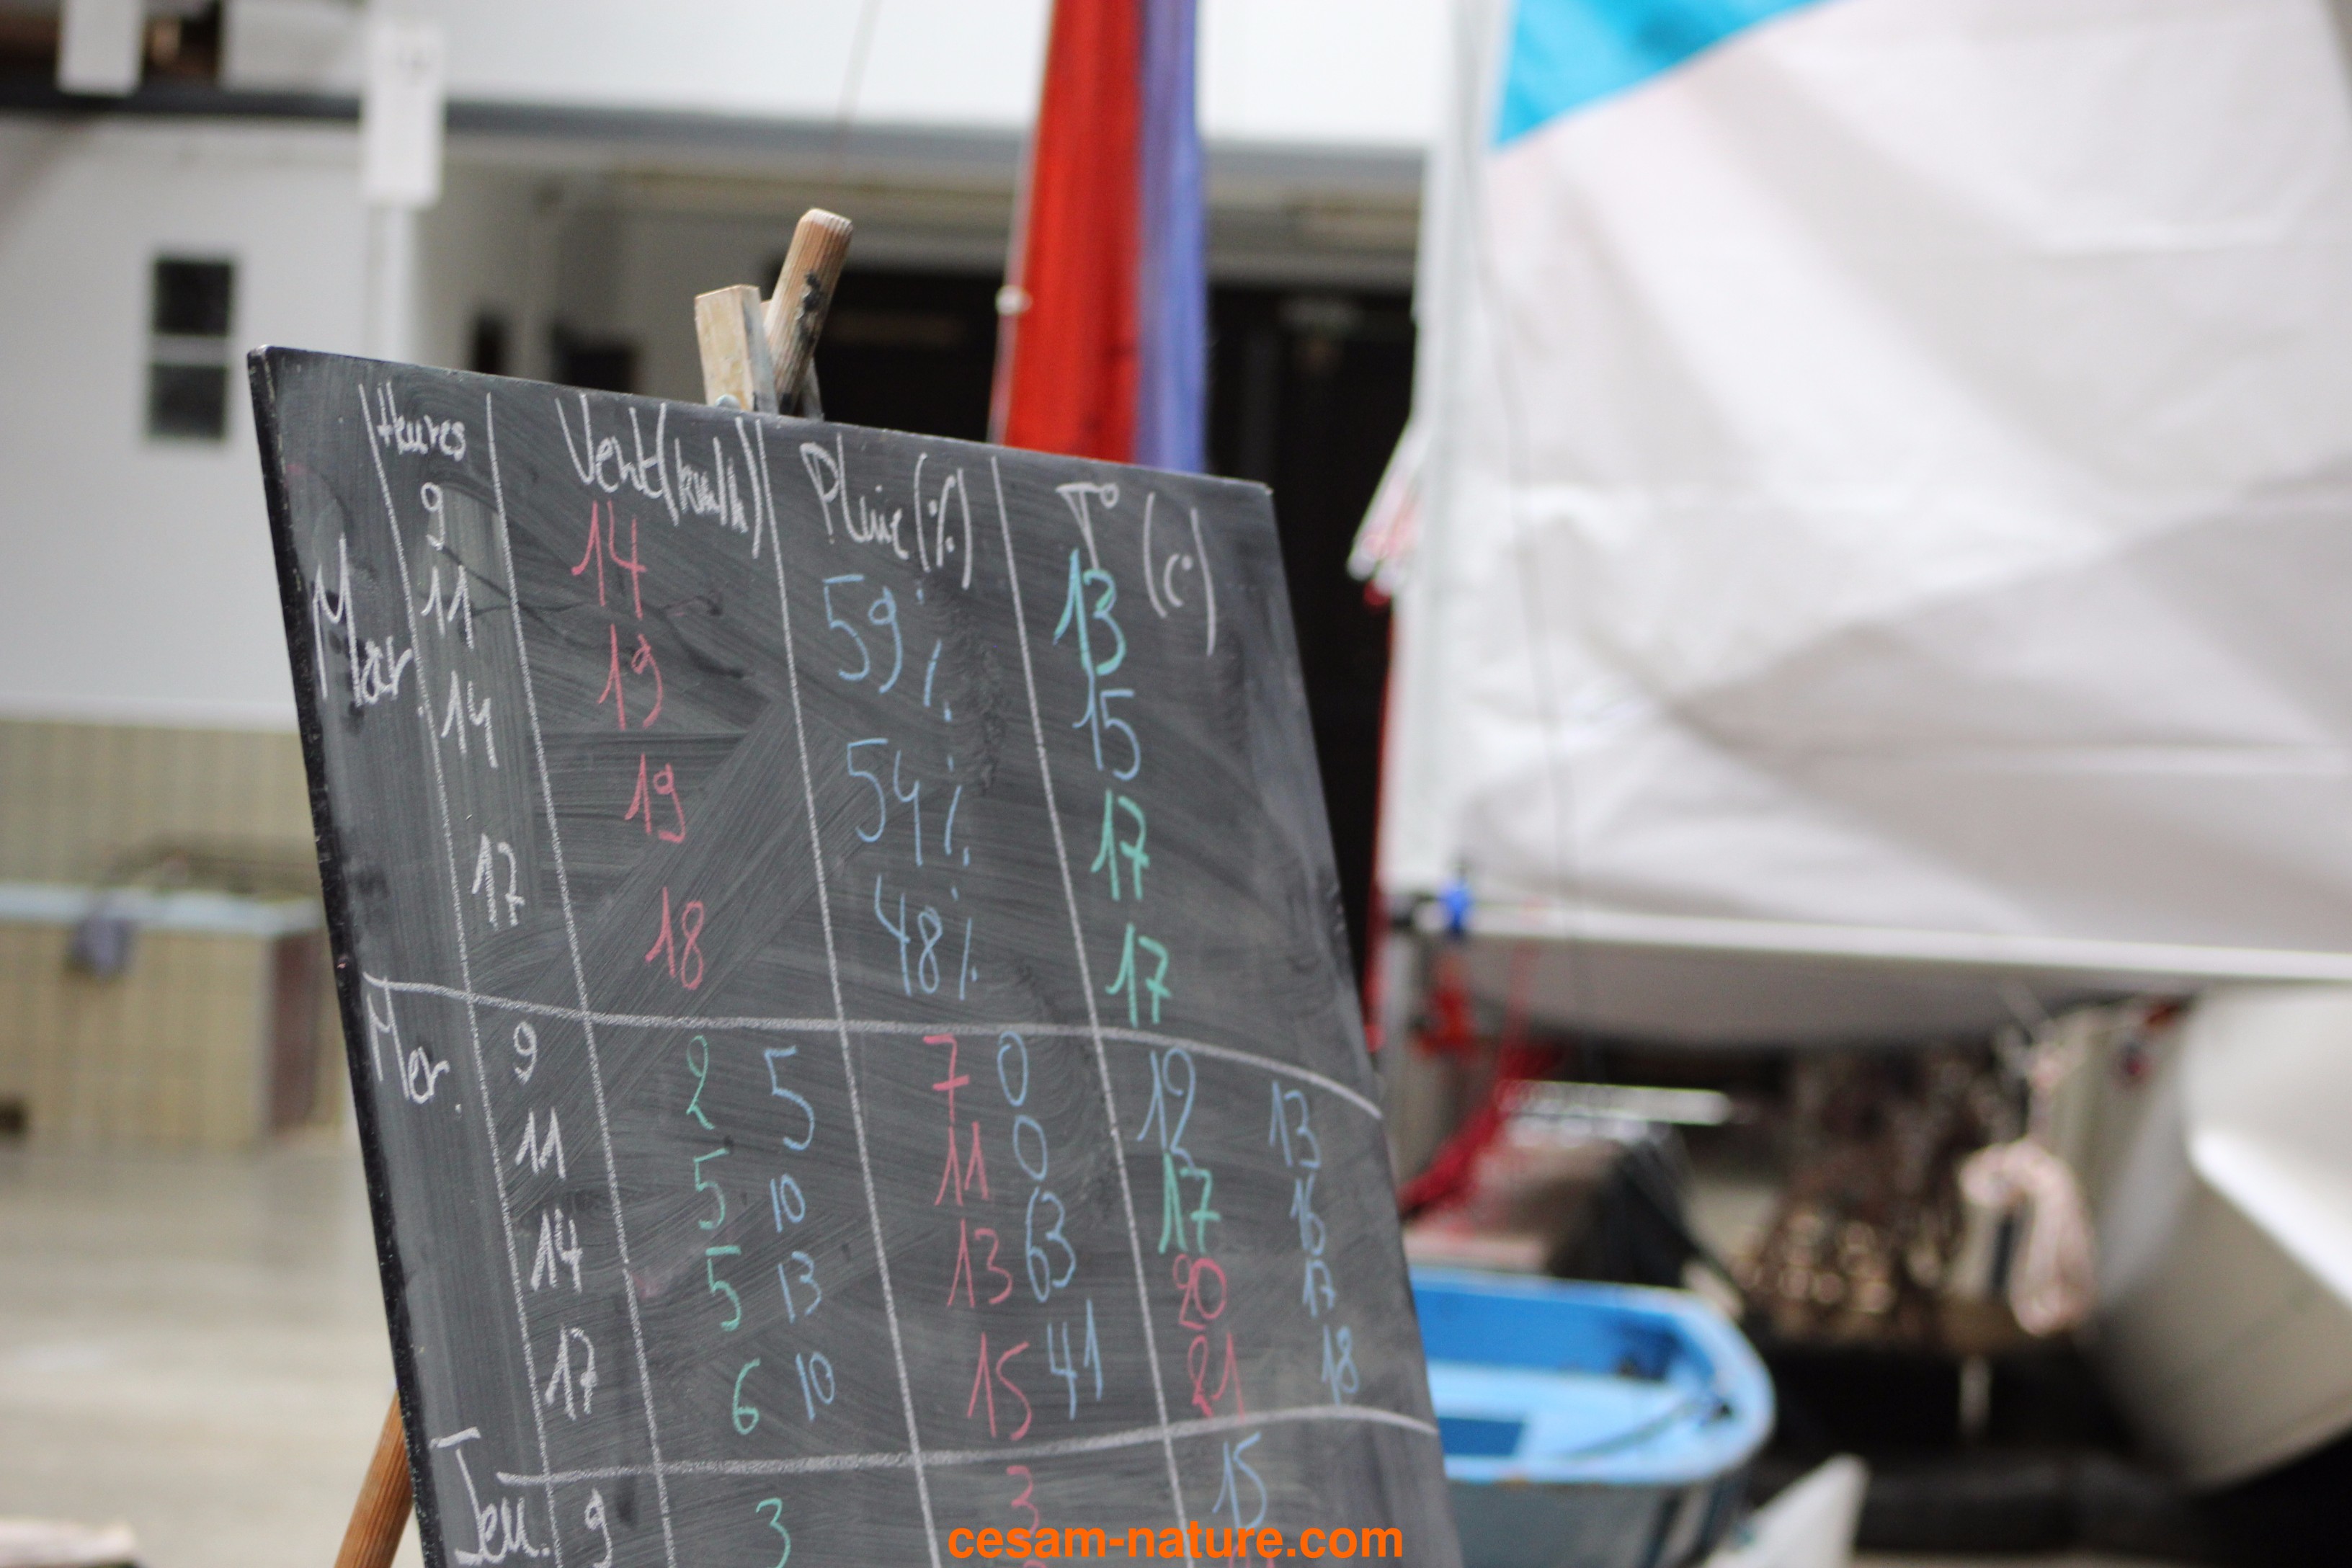 Heures Vent(km/h) Pluie(%) T° (c°)
Mar. 9 14 59% 13
11 19 54% 15
14 19 48% 17
17 18 17
Mer. 9 2 5 7 0 12 13
11 5 10 11 0 17 16
14 5 13 13 63 20 17
17 6 10 15 41 21 18
Jeu. 9 3 3 15
cesam-nature.com